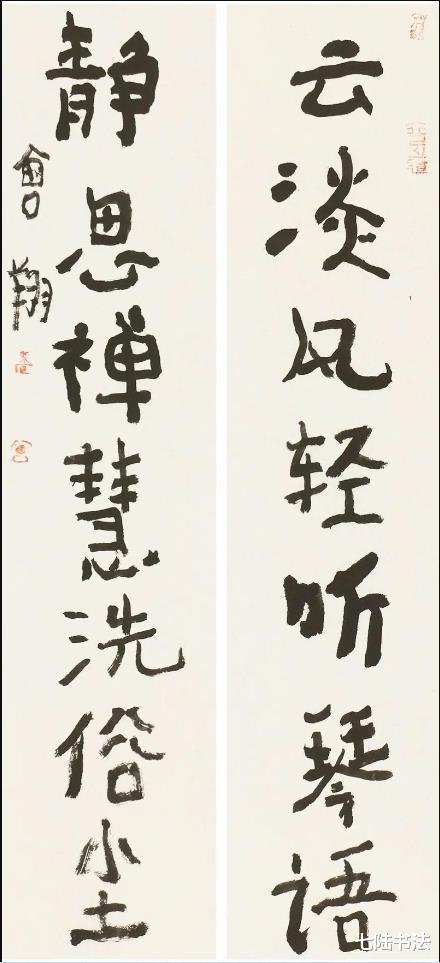 云淡风轻听琴语
静思禅慧洗俗尘
會翔
七陆书法